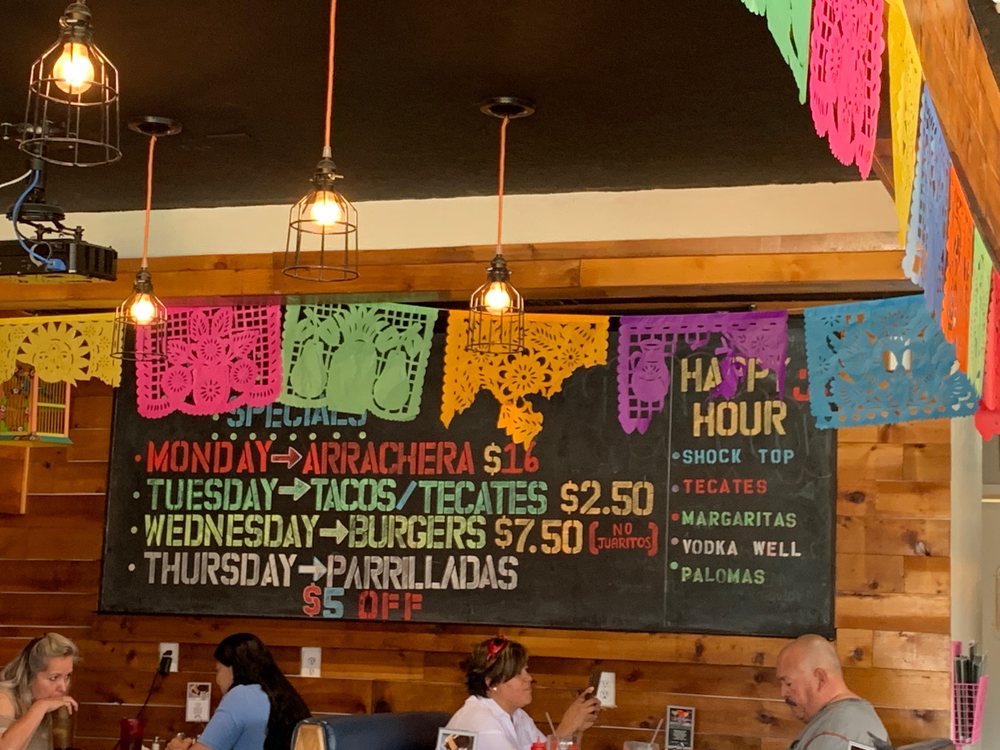 SPECIALS
• MONDAY→ARRACHERA $16
• TUESDAY→TACOS/TECATES $2.50
• WEDNESDAY→BURGERS $7.50 [NO JUARITOS]
• THURSDAY→PARRILLADAS
$5 OFF
HAPPY
HOUR
• SHOCK TOP
• TECATES
• MARGARITAS
• VODKA WELL
• PALOMAS